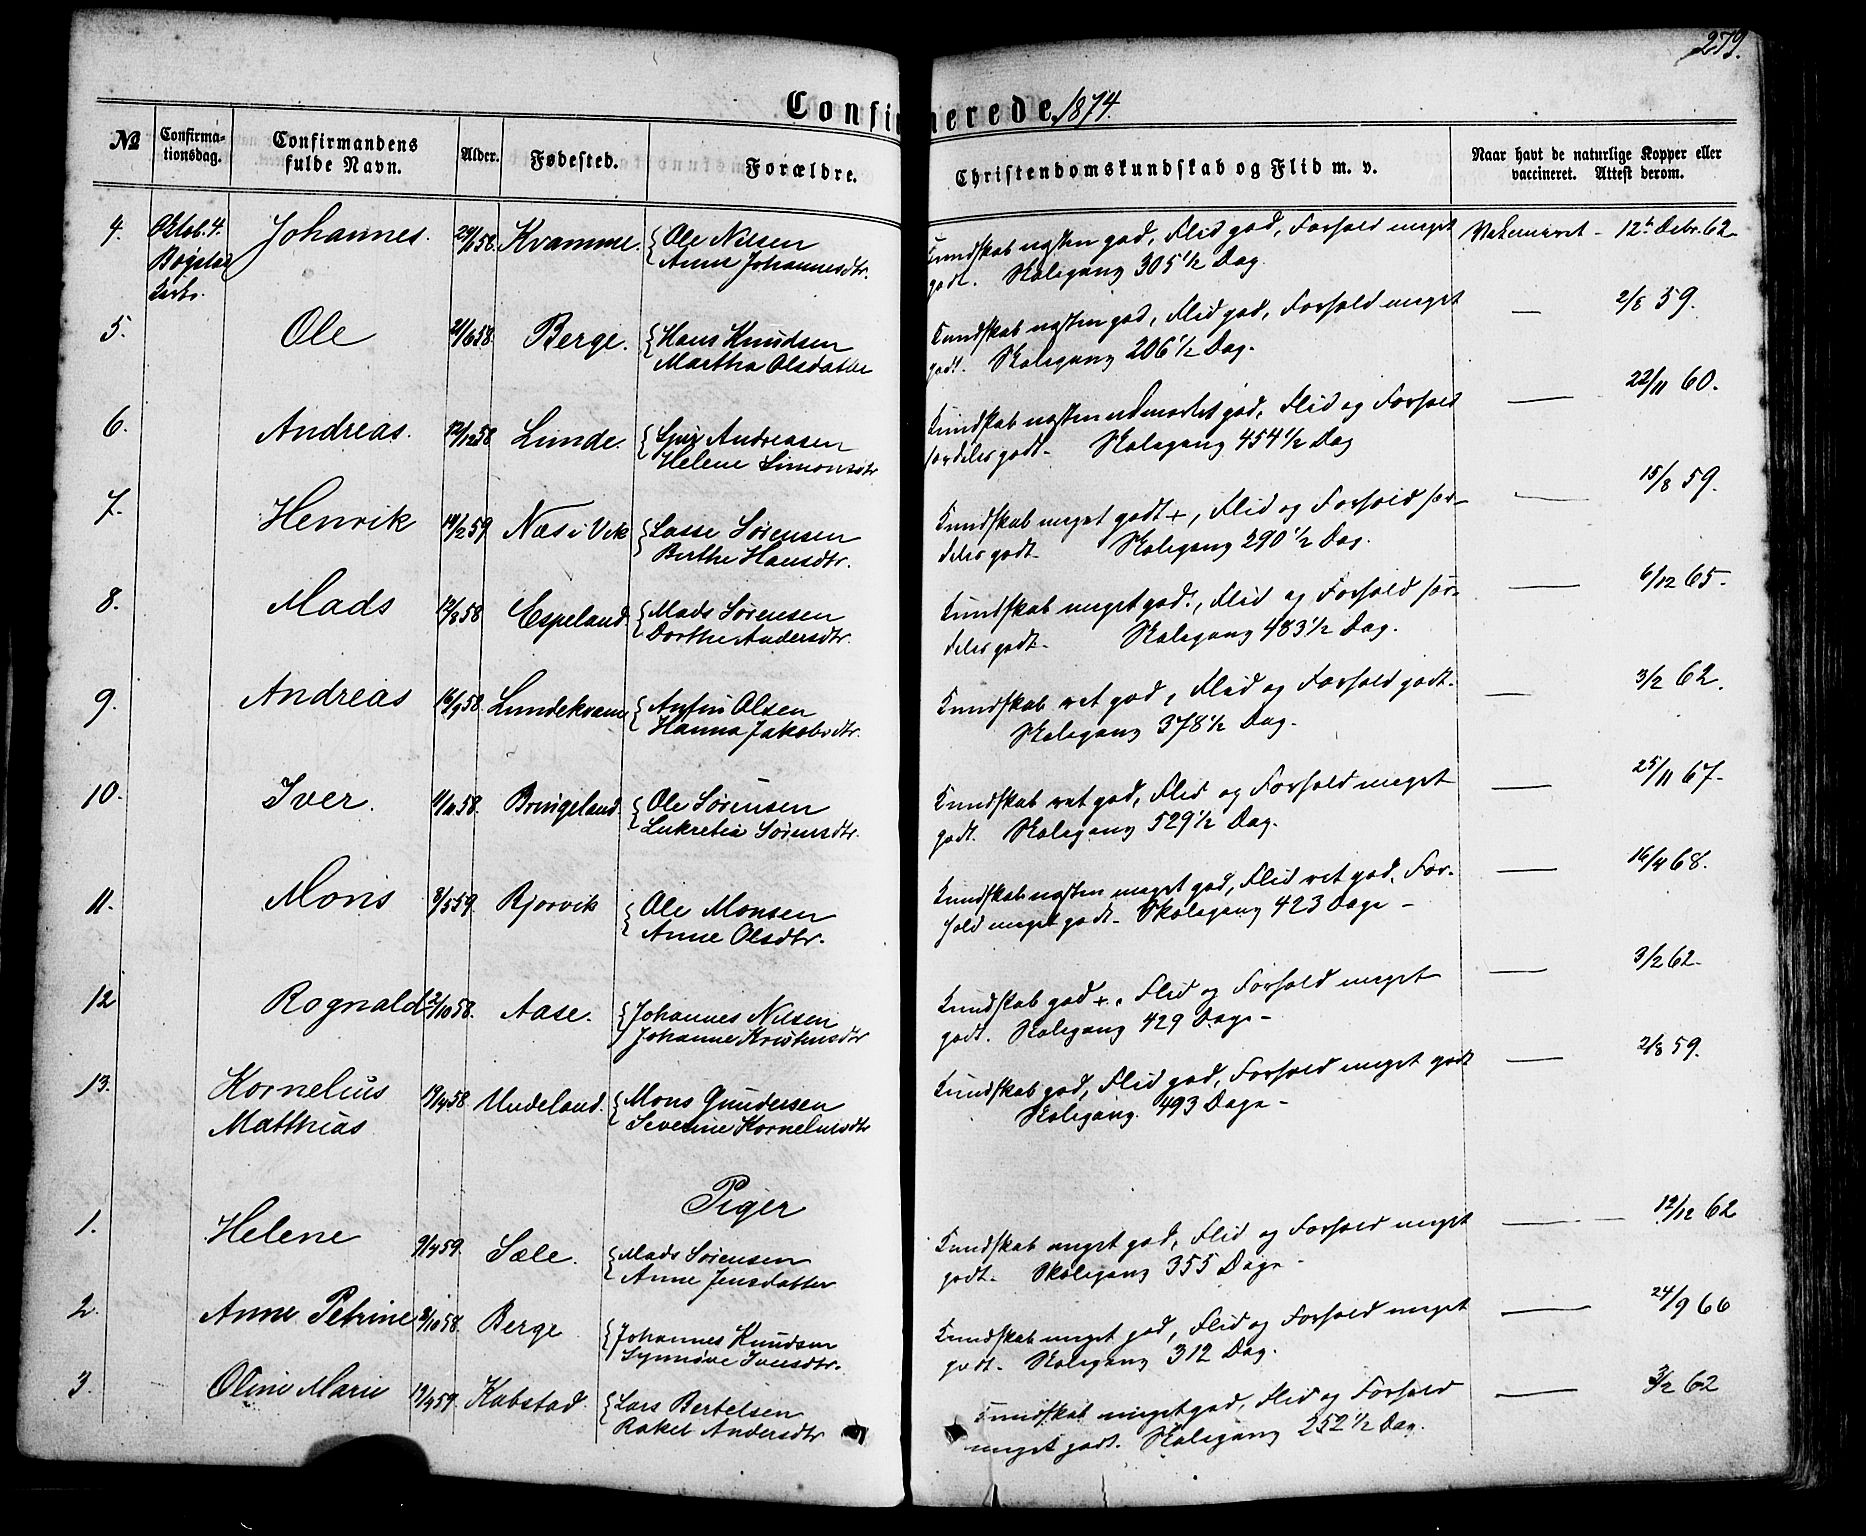 279.
Confirmerede 1874.
№ Confirmationsdag. Confirmandens fulde Navn. Alder. Fødested. Forældre. Christendomskundskab og Flid m. v. Naar havt de naturlige Kopper eller vaccineret. Attest derom.
4. Oktob. 4. Johannes. 58. Kvamme. Ole Nilsen Kundskab næsten god, Flid god, Forhold meget 12te Debr. 62
Kirke. Anna Johannesdtr. godt. Skolegang 305 1/2 Dag.
5. Ole 58. Berge. Hans Knudsen Kundskab næsten god, Flid god, Forhold meget — 2/8 59.
Martha Olsdatter godt. Skolegang 206 1/2 Dag.
6. Andreas. 12/12 58 Lunde. Andreasen Kundskab næsten udmærket god, Flid og Forhold — 22/11 60.
Helene Simonsdtr særdeles godt. Skolegang 454 1/2 Dag
7. Henrik 14/2 59 Næs i Vik Lasse Sørensen Kundskab meget godt +, Flid og Forhold sær- — 15/8 59.
Berthe Hansdtr. deles godt. Skolegang 290 1/2 Dag.
8. Mads 12/8 58 Espeland Mads Sørensen Kundskab meget god, Flid og Forhold sær- — 6/12 65.
Dorthe Andersdtr. deles godt. Skolegang 483 1/2 Dag.
9. Andreas 16/9 58. Lundekvam Anfin Olsen Kundskab ret god, Flid og Forhold godt. — 3/2 62.
Hanna Jakobsdtr. Skolegang 378 1/2 Dag.
10. Iver. 58. Bringeland Ole Sørensen Kundskab ret god, Flid og Forhold meget — 25/11 67.
Lukretia Sørensdtr. godt. Skolegang 529 1/2 Dag.
11. Mons 8/5 59. Bjorvik Ole Monsen Kundskab næsten meget god, Flid ret god, For- — 16/4 68.
Anne Olsdtr. hold meget godt. Skolegang 423 Dage —
12 Rognald 2/10 58. Aase. Johannes Nilsen Kundskab god +, Flid og Forhold meget — 3/2 62.
Johanne Kristensdtr godt. Skolegang 429 Dage —
13. Kornelius 19/4 58. Undeland. Mons Gundersen Kundskab god, Flid god, Forhold meget godt — 2/8 59.
Matthias Severine Korneliusdtr Skolegang. 493 Dage —
Piger
1. Helene 9/4 59. Sæle. Mads Sørensen Kundskab meget god, Flid og Forhold meget — 12/12 62
Anne Jensdatter godt. Skolegang 355 Dage —
2. Anne Petrine 2/10 58. Berge Johannes Knudsen Kundskab meget god, Flid og Forhold meget — 24/9 66
Synnøve Iversdtr. godt. Skolegang 312 Dag.
3. Oline Marie 19/4 59. Kobstad Lars Bertelsen Kundskab meget god, Flid og Forhold — 3/2 62
Rakel Andersdtr meget godt. Skolegang 252 1/2 Dag.